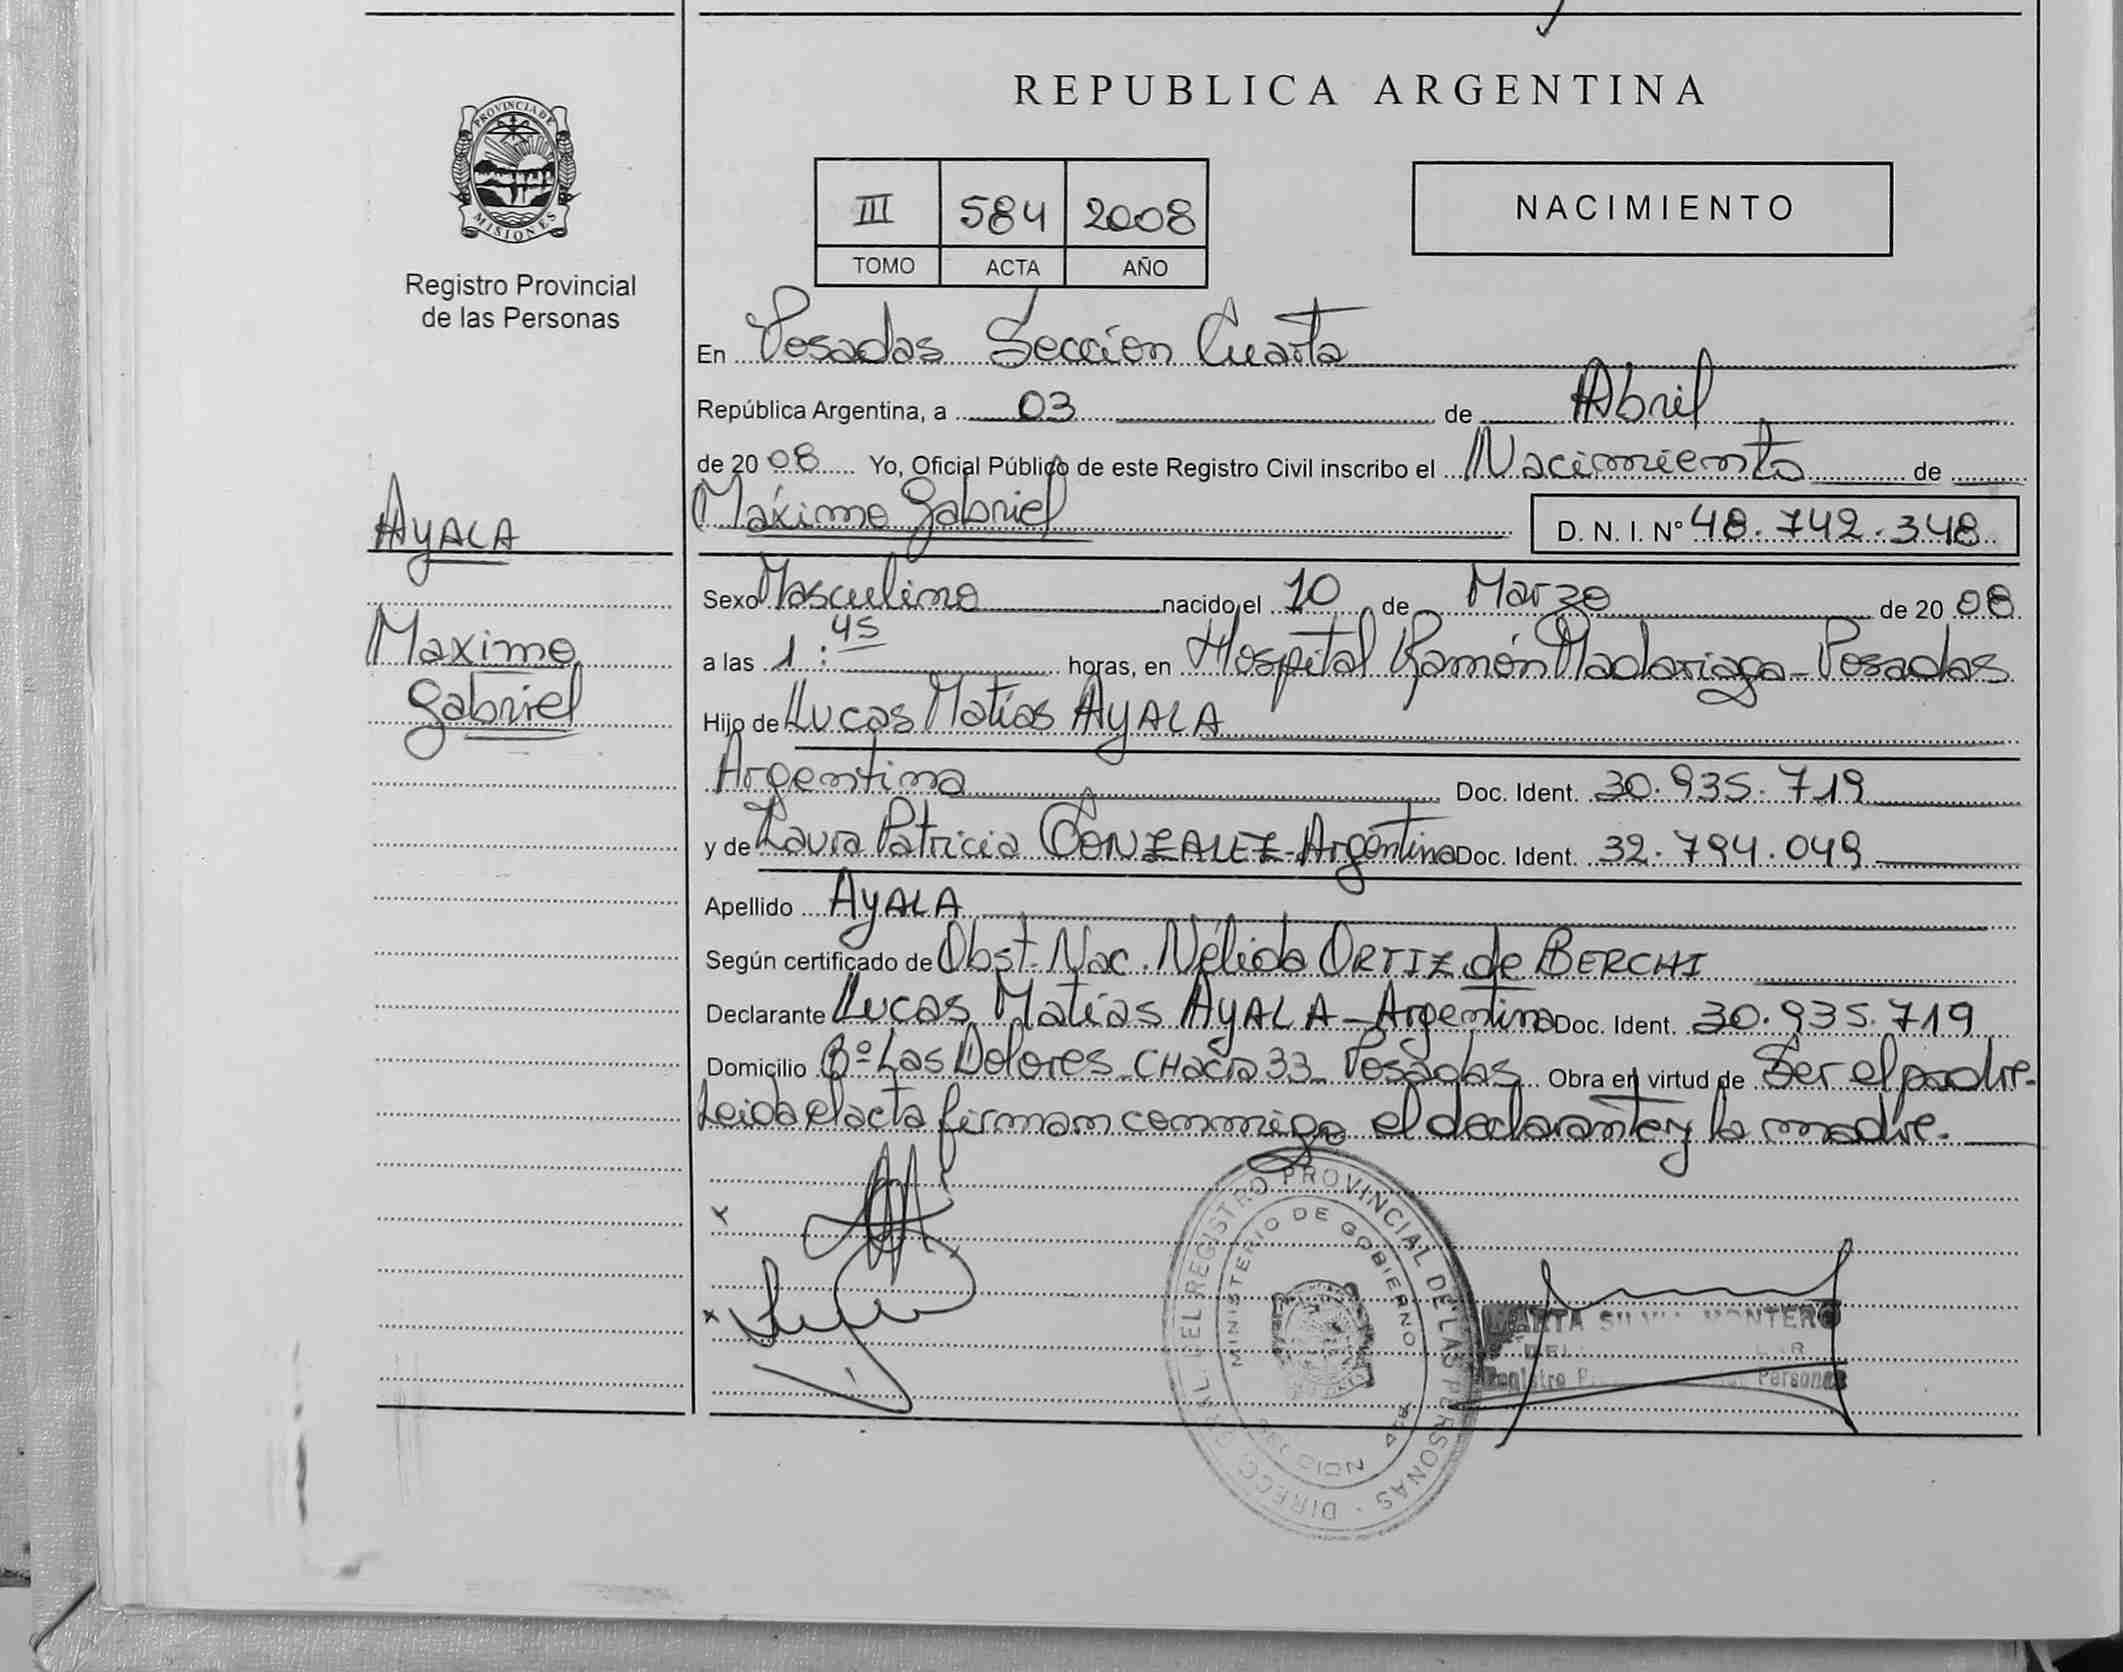 REPUBLICA ARGENTINA
PROVINCIA DE
MISIONES
Registro Provincial
de las Personas
III 584 2008
TOMO ACTA AÑO
NACIMIENTO
En Posadas Sección Cuarta
República Argentina, a 03 de Abril
de 2008 Yo, Oficial Público de este Registro Civil inscribo el Nacimiento de
Máximo Gabriel D. N. I. Nº 48.742.348
AYALA
Maximo
Gabriel
Sexo Masculino nacido el 10 de Marzo de 2008
a las 1:45 horas, en Hospital Ramón Madariaga - Posadas
Hijo de Lucas Matías AYALA
Argentina Doc. Ident. 30.935.719
y de Laura Patricia GONZALEZ - Argentina Doc. Ident. 32.794.049
Apellido AYALA
Según certificado de Obst. Nac. Nélida ORTIZ de BERCHI
Declarante Lucas Matías AYALA - Argentina Doc. Ident. 30.935.719
Domicilio Bº Las Dolores - CHacra 33 - Posadas Obra en virtud de Ser el padre.
Leida el acta firman conmigo el declarante y la madre.
DIRECC. GRAL. DEL REGISTRO PROVINCIAL DE LAS PERSONAS
MINISTERIO DE GOBIERNO
MARTA SILVIA MONTERO
Registro Personas